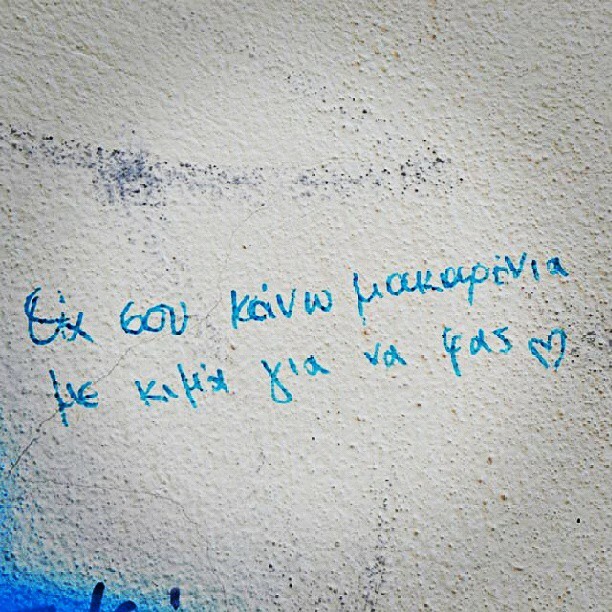 Θα σου κάνω μακαρόνια
με κιμά για να φας ♡